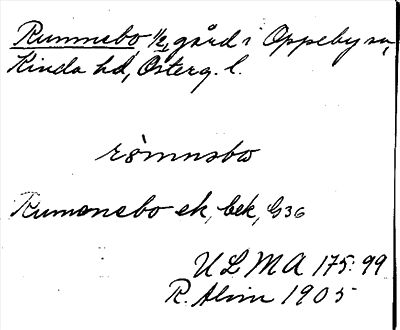 Rumnebo 1/2, gård i Oppeby sn,
Kinda hd, Österg. l.
römnsbo
Rumenebo ek, bek, G36
ULMA 175:99
R. Alvin 1905